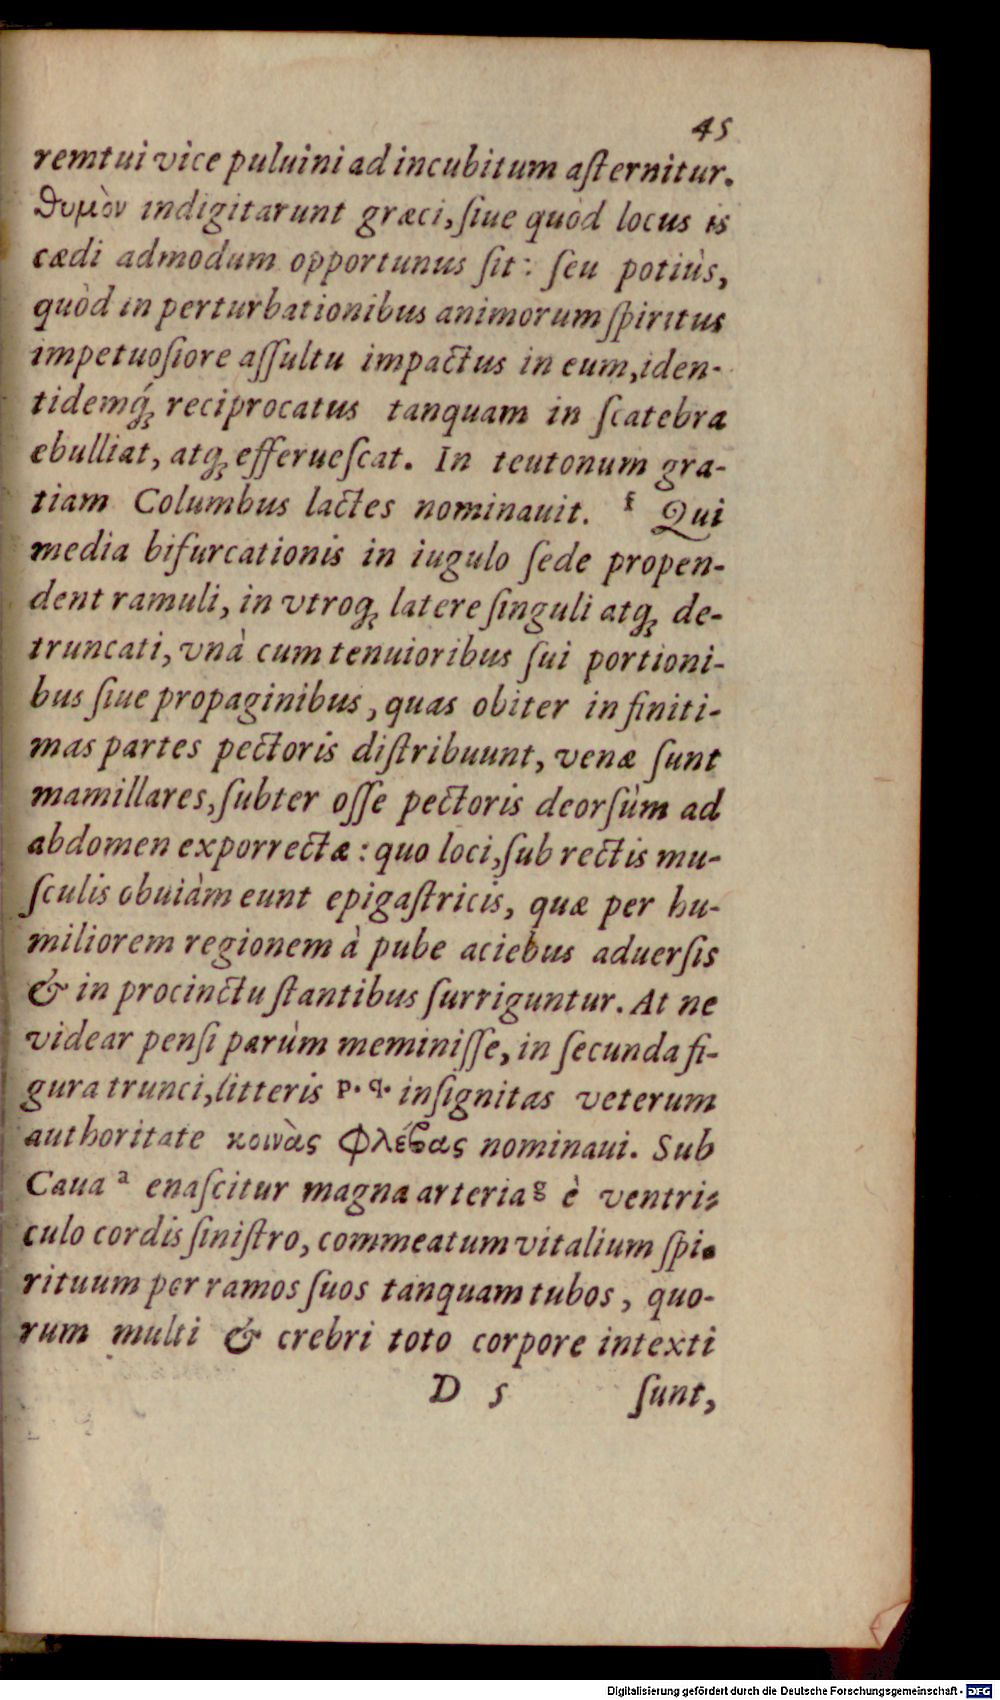 45
remtui vice puluini ad incubitum aſternitur.
Θυμὸν indigitarunt græci, ſiue quòd locus is
cædi admodum opportunus ſit: ſeu potiùs,
quòd in perturbationibus animorum ſpiritus
impetuoſiore aſſultu impactus in eum, iden-
tidemq́ꝫ reciprocatus tanquam in ſcatebra
ebulliat, atqꝫ efferueſcat. In teutonum gra-
tiam Columbus lactes nominauit. f Qui
media bifurcationis in iugulo ſede propen-
dent ramuli, in vtroqꝫ latere ſinguli atqꝫ de-
truncati, vnà cum tenuioribus ſui portioni-
bus ſiue propaginibus, quas obiter in finiti-
mas partes pectoris diſtribuunt, venæ ſunt
mamillares, ſubter oſſe pectoris deorſùm ad
abdomen exporrectæ: quo loci, ſub rectis mu-
ſculis obuiàm eunt epigaſtricis, quæ per hu-
miliorem regionem à pube aciebus aduerſis
& in procinctu ſtantibus ſurriguntur. At ne
videar penſi parùm meminiſſe, in ſecunda fi-
gura trunci, litteris p. q. inſignitas veterum
authoritate κοινὰς φλέβας nominaui. Sub
Caua a enaſcitur magna arteria g è ventri-
culo cordis ſiniſtro, commeatum vitalium ſpi-
rituum per ramos ſuos tanquam tubos, quo-
rum multi & crebri toto corpore intexti
D 5 ſunt,
Digitalisierung gefördert durch die Deutsche Forschungsgemeinschaft - DFG